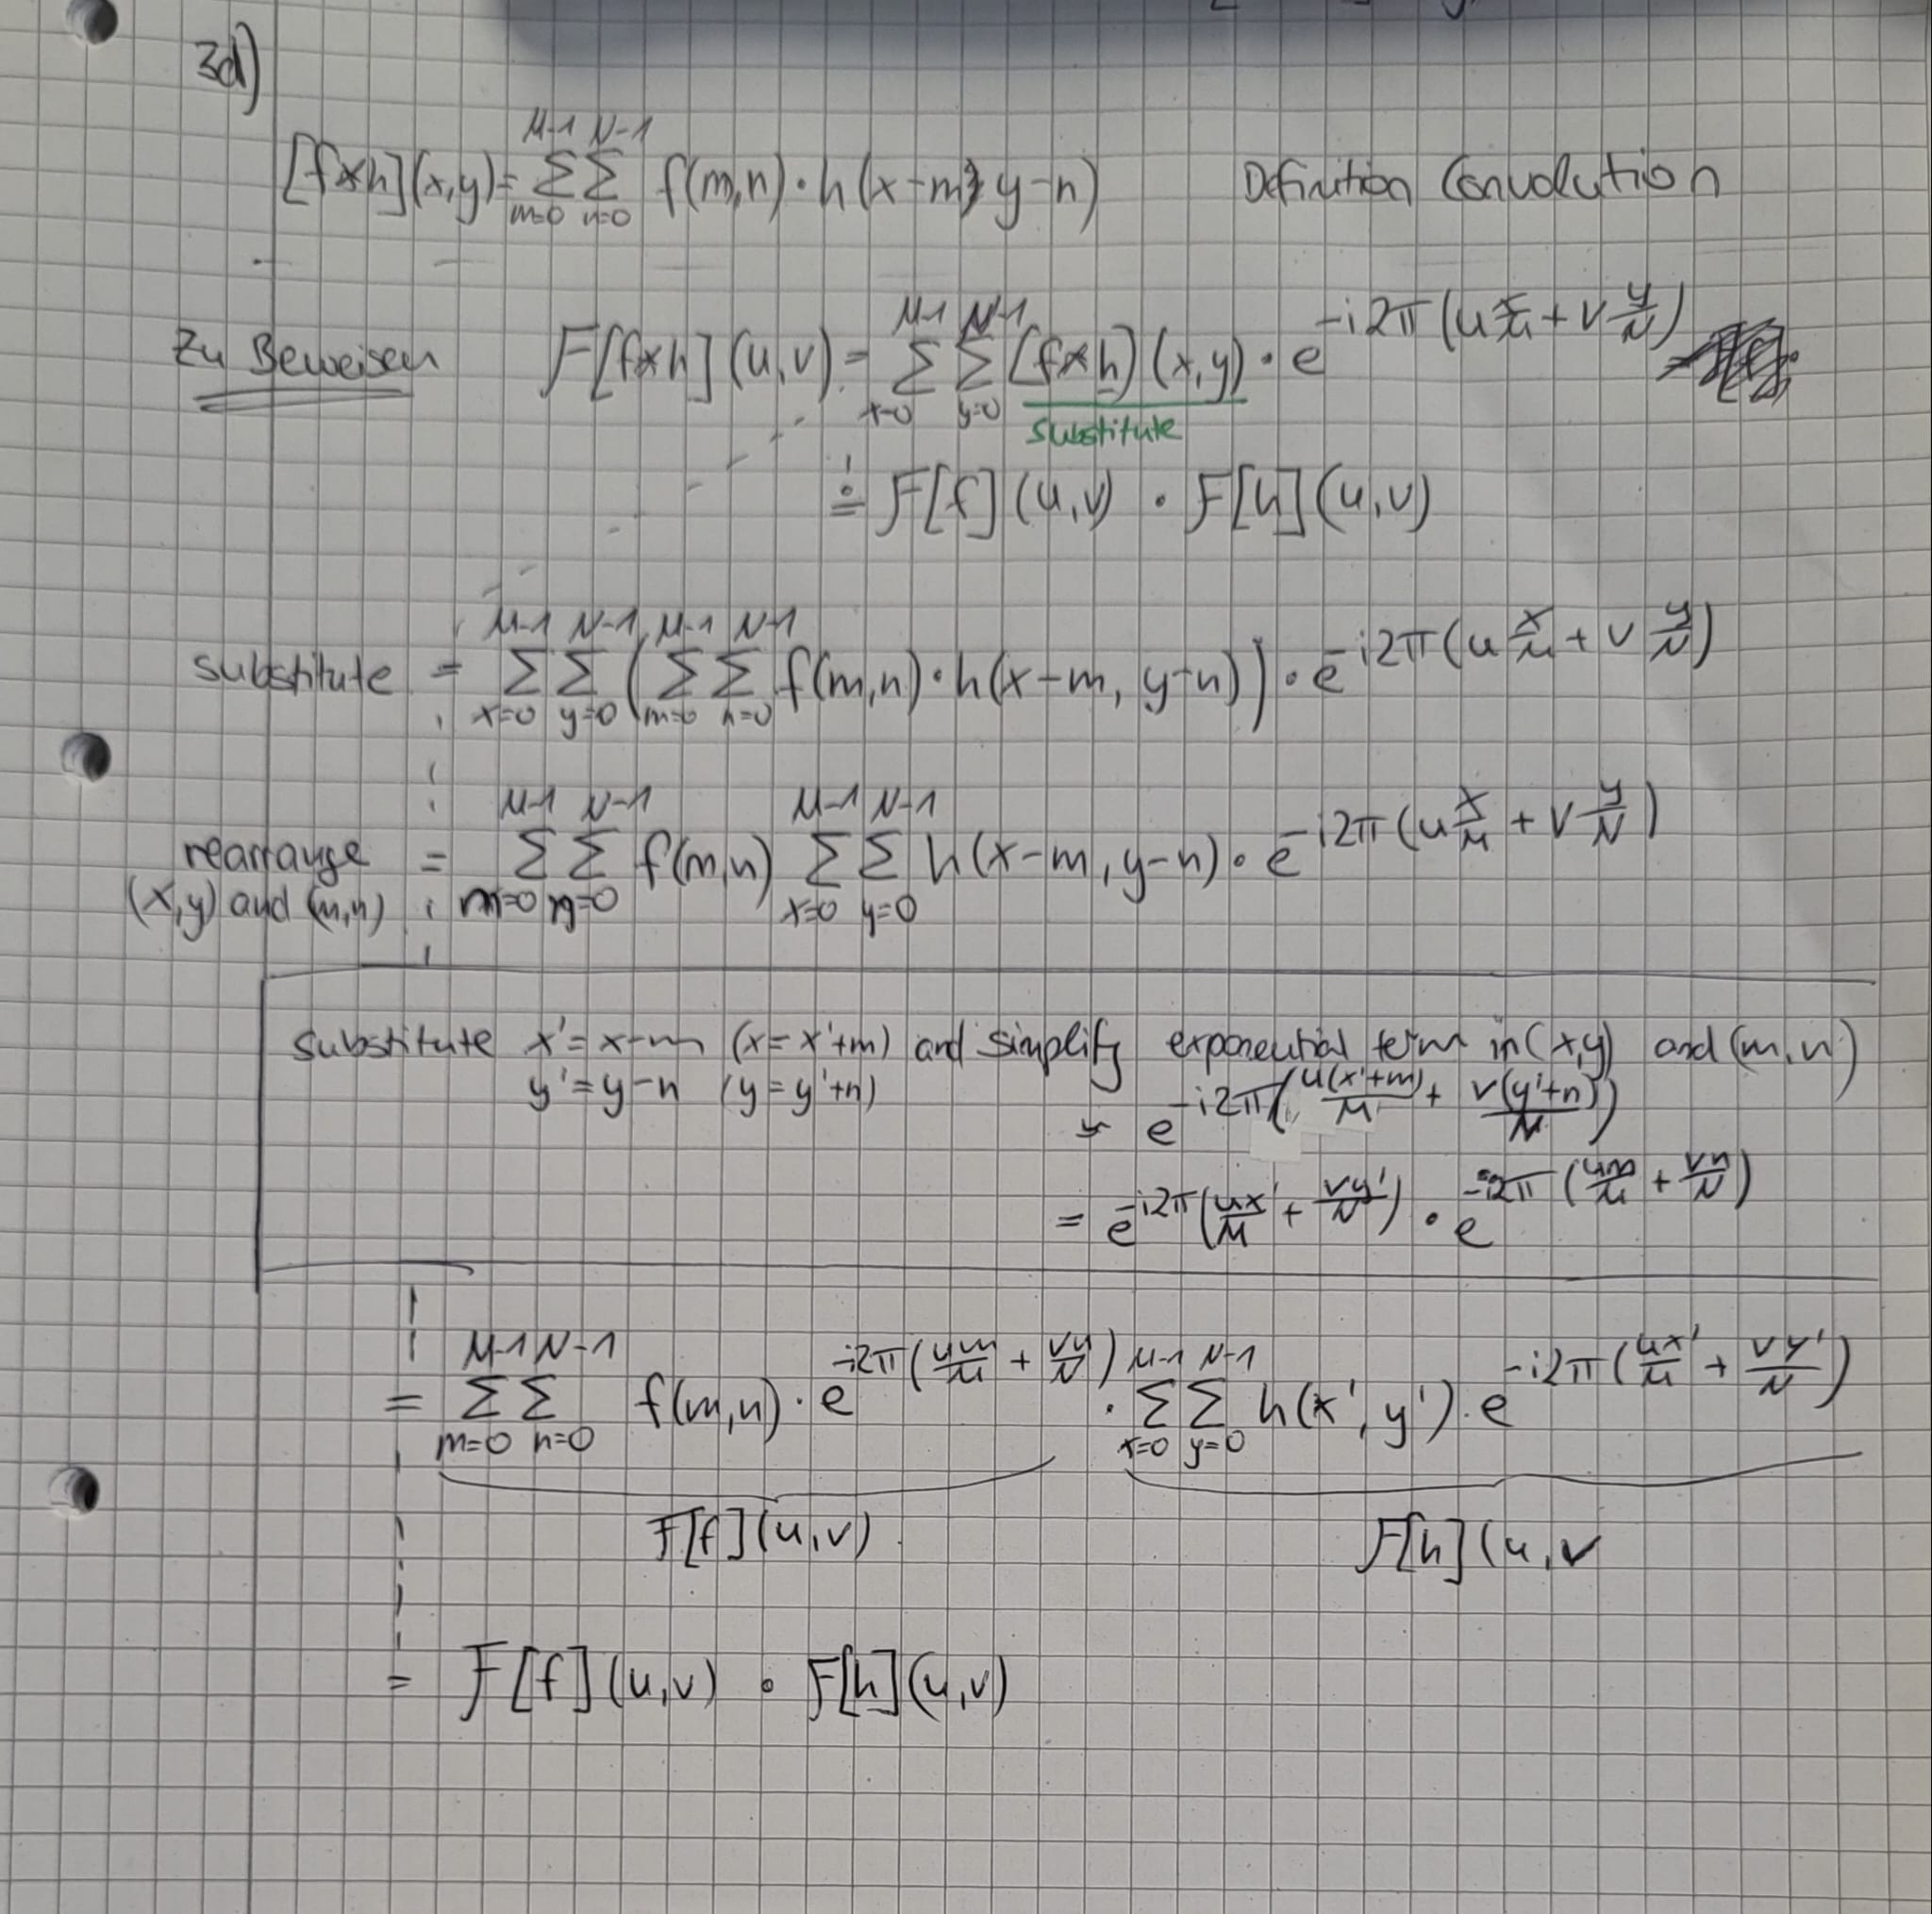 3d)
[f*h](x,y) = \sum_{m=0}^{M-1} \sum_{n=0}^{N-1} f(m,n) · h(x-m, y-n) Definition Convolution
Zu Beweisen F[f*h](u,v) = \sum_{x=0}^{M-1} \sum_{y=0}^{N-1} [f*h](x,y) · e^{-i2π(u\frac{x}{M} + v\frac{y}{N})}
substitute
\overset{!}{=} F[f](u,v) · F[h](u,v)
substitute = \sum_{x=0}^{M-1} \sum_{y=0}^{N-1} (\sum_{m=0}^{M-1} \sum_{n=0}^{N-1} f(m,n) · h(x-m, y-n)) · e^{-i2π(u\frac{x}{M} + v\frac{y}{N})}
rearrange = \sum_{m=0}^{M-1} \sum_{n=0}^{N-1} f(m,n) \sum_{x=0}^{M-1} \sum_{y=0}^{N-1} h(x-m, y-n) · e^{-i2π(u\frac{x}{M} + v\frac{y}{N})}
(x,y) and (m,n)
substitute x' = x-m (x = x'+m) and simplify exponential term in (x,y) and (m,n)
y' = y-n (y = y'+n)
e^{-i2π(\frac{u(x'+m)}{M} + \frac{v(y'+n)}{N})}
= e^{-i2π(\frac{ux'}{M} + \frac{vy'}{N})} · e^{-i2π(\frac{um}{M} + \frac{vn}{N})}
= \sum_{m=0}^{M-1} \sum_{n=0}^{N-1} f(m,n) · e^{-i2π(\frac{um}{M} + \frac{vn}{N})} · \sum_{x=0}^{M-1} \sum_{y=0}^{N-1} h(x', y') · e^{-i2π(\frac{ux'}{M} + \frac{vy'}{N})}
F[f](u,v) F[h](u,v
= F[f](u,v) · F[h](u,v)